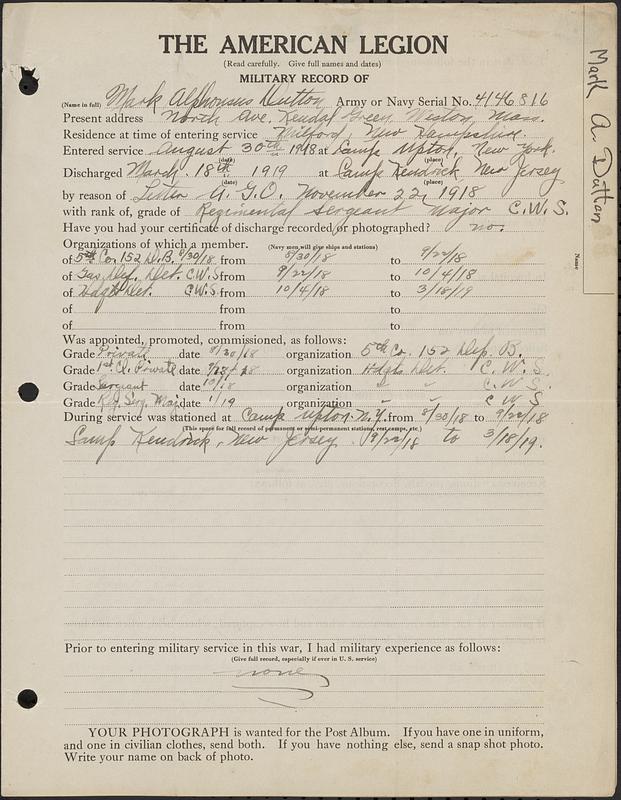 THE AMERICAN LEGION
(Read carefully. Give full names and dates)
MILITARY RECORD OF
(Name in full) Mark Alphonsus Dutton Army or Navy Serial No. 4146816
Present address North Ave. Kendal Green, Weston, Mass.
Residence at time of entering service Milford, New Hampshire.
Entered service August 30th 1918 at Camp Upton, New York.
(date) (place)
Discharged March 18th 1919 at Camp Kendrick, New Jersey
(date) (place)
by reason of Letter A.G.O. November 22, 1918
with rank, of grade of Regimental Sergeant Major C.W.S.
Have you had your certificate of discharge recorded or photographed? no.
Organizations of which a member. (Navy men will give ships and stations)
of 5th Co. 152 D.B. 8/30/18 from 8/30/18 to 9/22/18
of Gas Def. Det. C.W.S. from 9/22/18 to 10/4/18
of Hdqts Det. C.W.S. from 10/4/18 to 3/18/19
of from to
of from to
Was appointed, promoted, commissioned, as follows:
Grade Private date 8/30/18 organization 5th Co. 152 Dep. B.
Grade 1st Cl. Private date organization Hdqts Det. C.W.S.
Grade Sergeant date 10/18 organization " " C.W.S.
Grade Reg. Serg. Maj. date 1/19 organization " " C.W.S.
During service was stationed at Camp Upton N.Y. from 8/30/18 to 9/22/18
(This space for full record of permanent or semi-permanent stations, rest camps, etc.)
Camp Kendrick, New Jersey. 9/22/18 to 3/18/19.
Prior to entering military service in this war, I had military experience as follows:
(Give full record, especially if ever in U. S. service)
none
YOUR PHOTOGRAPH is wanted for the Post Album. If you have one in uniform,
and one in civilian clothes, send both. If you have nothing else, send a snap shot photo.
Write your name on back of photo.
Mark A. Dutton
Name